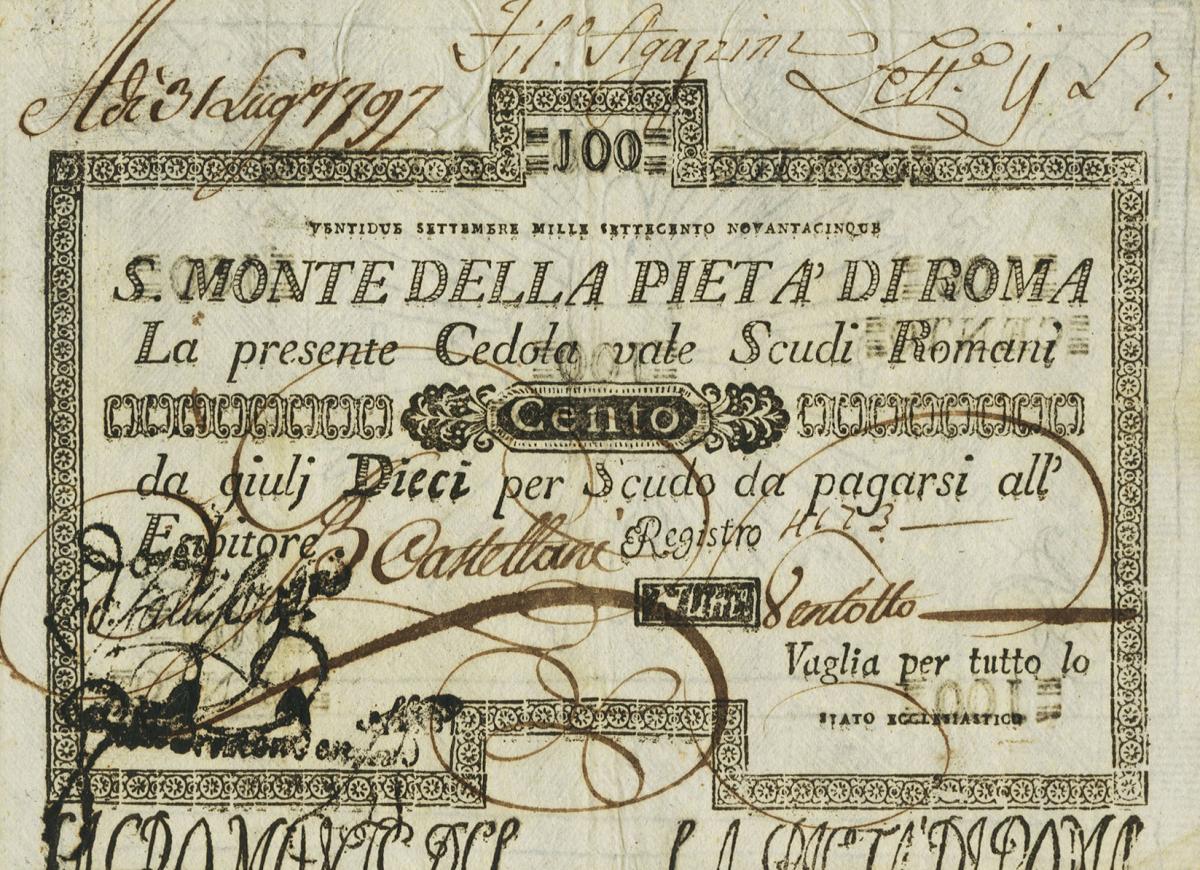 Fil.º Agazzini
Adi 31 Lug.º 1797
Lett.ª
100
VENTIDUE SETTEMBRE MILLE SETTECENTO NOVANTACINQUE
S. MONTE DELLA PIETA' DI ROMA
La presente Cedola vale Scudi Romani
Cento
da giulj Dieci per Scudo da pagarsi all'
Esibitore. Castellani Registro 4173
Ventotto
Vaglia per tutto lo
STATO ECCLESIASTICO
100